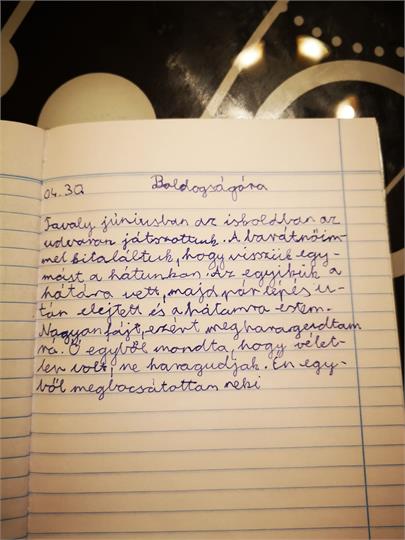 04.30. Boldogságóra
Tavaly júniusban az iskolában az
udvaron játszottunk. A barátnőim-
mel kitaláltuk, hogy visszük egy-
mást a hátunkon. Az egyikük a
hátára vett, majd pár lépés u-
tán elejtett és a hátamra estem.
Nagyon fájt, ezért megharagudtam
rá. Ő egyből mondta, hogy vélet-
len volt, ne haragudjak. Én egy-
ből megbocsátottam neki